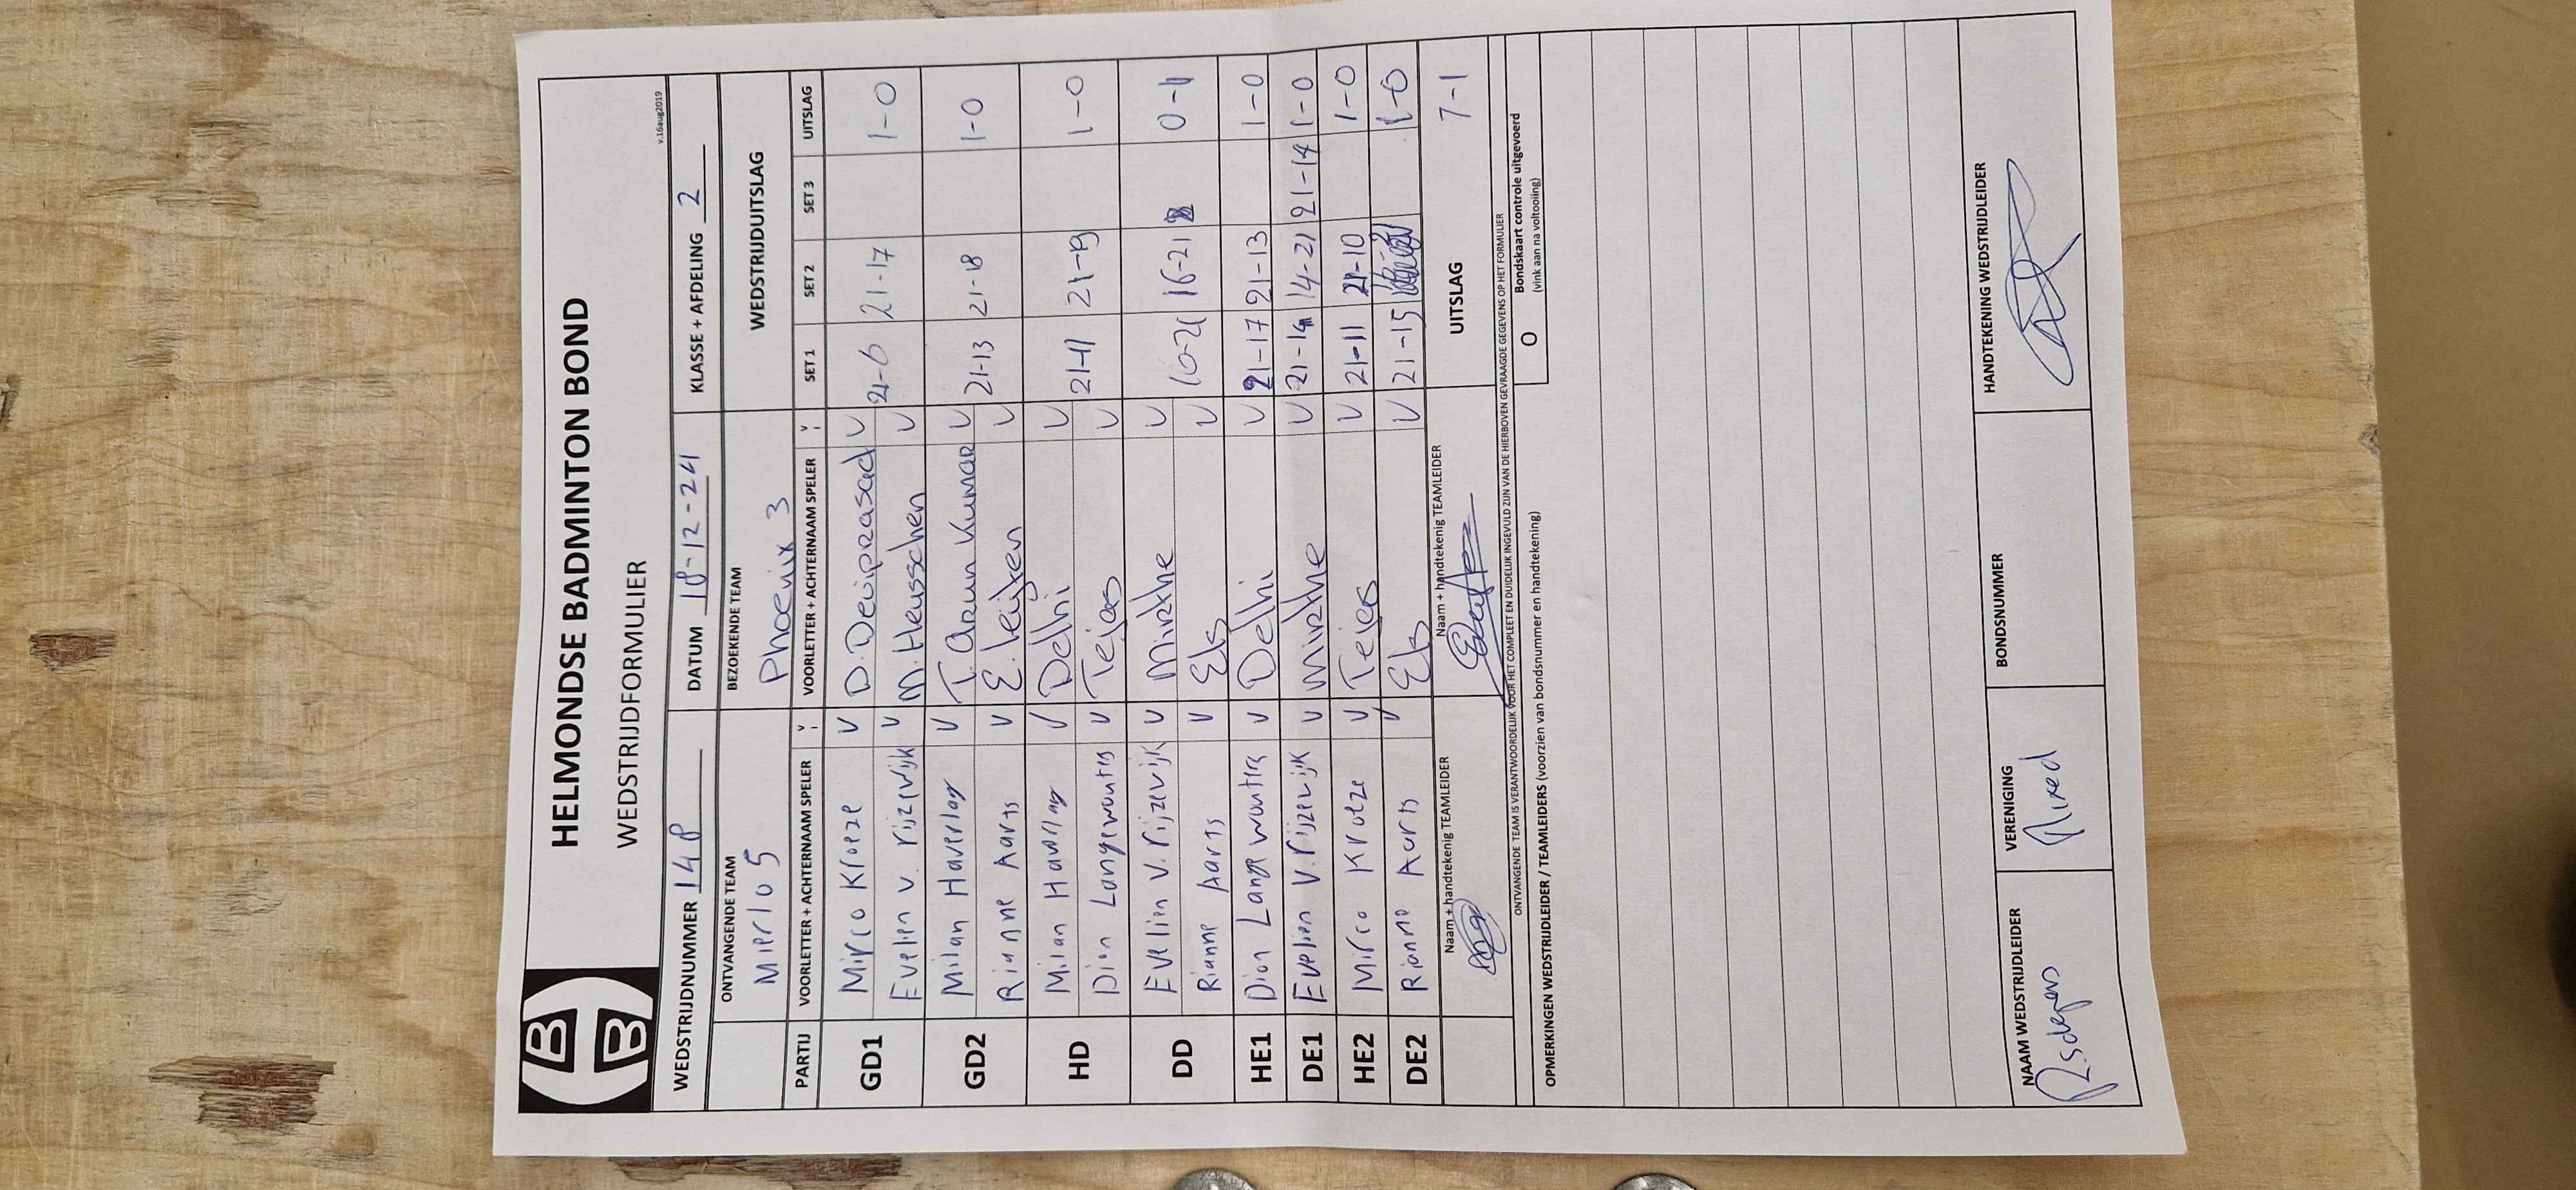 HELMONDSE BADMINTON BOND
WEDSTRIJDFORMULIER
v.16aug2019
WEDSTRIJDNUMMER 148 DATUM 18-12-24 KLASSE + AFDELING 2
ONTVANGENDE TEAM BEZOEKENDE TEAM WEDSTRIJDUITSLAG
Mierlo 5 Phoenix 3
PARTIJ VOORLETTER + ACHTERNAAM SPELER V VOORLETTER + ACHTERNAAM SPELER V SET 1 SET 2 SET 3 UITSLAG
GD1 Mirco Kroeze V D. Deviprasad V 21-6 21-17 1-0
Evelien v. Rijzewijk V M. Heusschen V
GD2 Milan Haverlag V T. Arun Kumar V 21-13 21-18 1-0
Rianne Aarts V E. Leijten V
HD Milan Haverlag V Delhi V 21-11 21-19 1-0
Dion Langewouters V Tejas V
DD Evelien V. Rijzewijk V Mirthe V 16-21 0-1
Rianne Aarts V Els V
HE1 Dion Langewouters V Delhi V 21-17 21-13 1-0
DE1 Evelien V. Rijzewijk V Mirthe V 21-14 14-21 21-14 1-0
HE2 Mirco Kroeze V Tejas V 21-11 21-10 1-0
DE2 Rianne Aarts V Els V 21-15 1-0
Naam + handtekenig TEAMLEIDER Naam + handtekenig TEAMLEIDER UITSLAG 7-1
ONTVANGENDE TEAM IS VERANTWOORDELIJK VOOR HET COMPLEET EN DUIDELIJK INGEVULD ZIJN VAN DE HIERBOVEN GEVRAAGDE GEGEVENS OP HET FORMULIER
O Bondskaart controle uitgevoerd
(vink aan na voltooiing)
OPMERKINGEN WEDSTRIJDLEIDER / TEAMLEIDERS (voorzien van bondsnummer en handtekening)
NAAM WEDSTRIJDLEIDER VERENIGING BONDSNUMMER HANDTEKENING WEDSTRIJDLEIDER